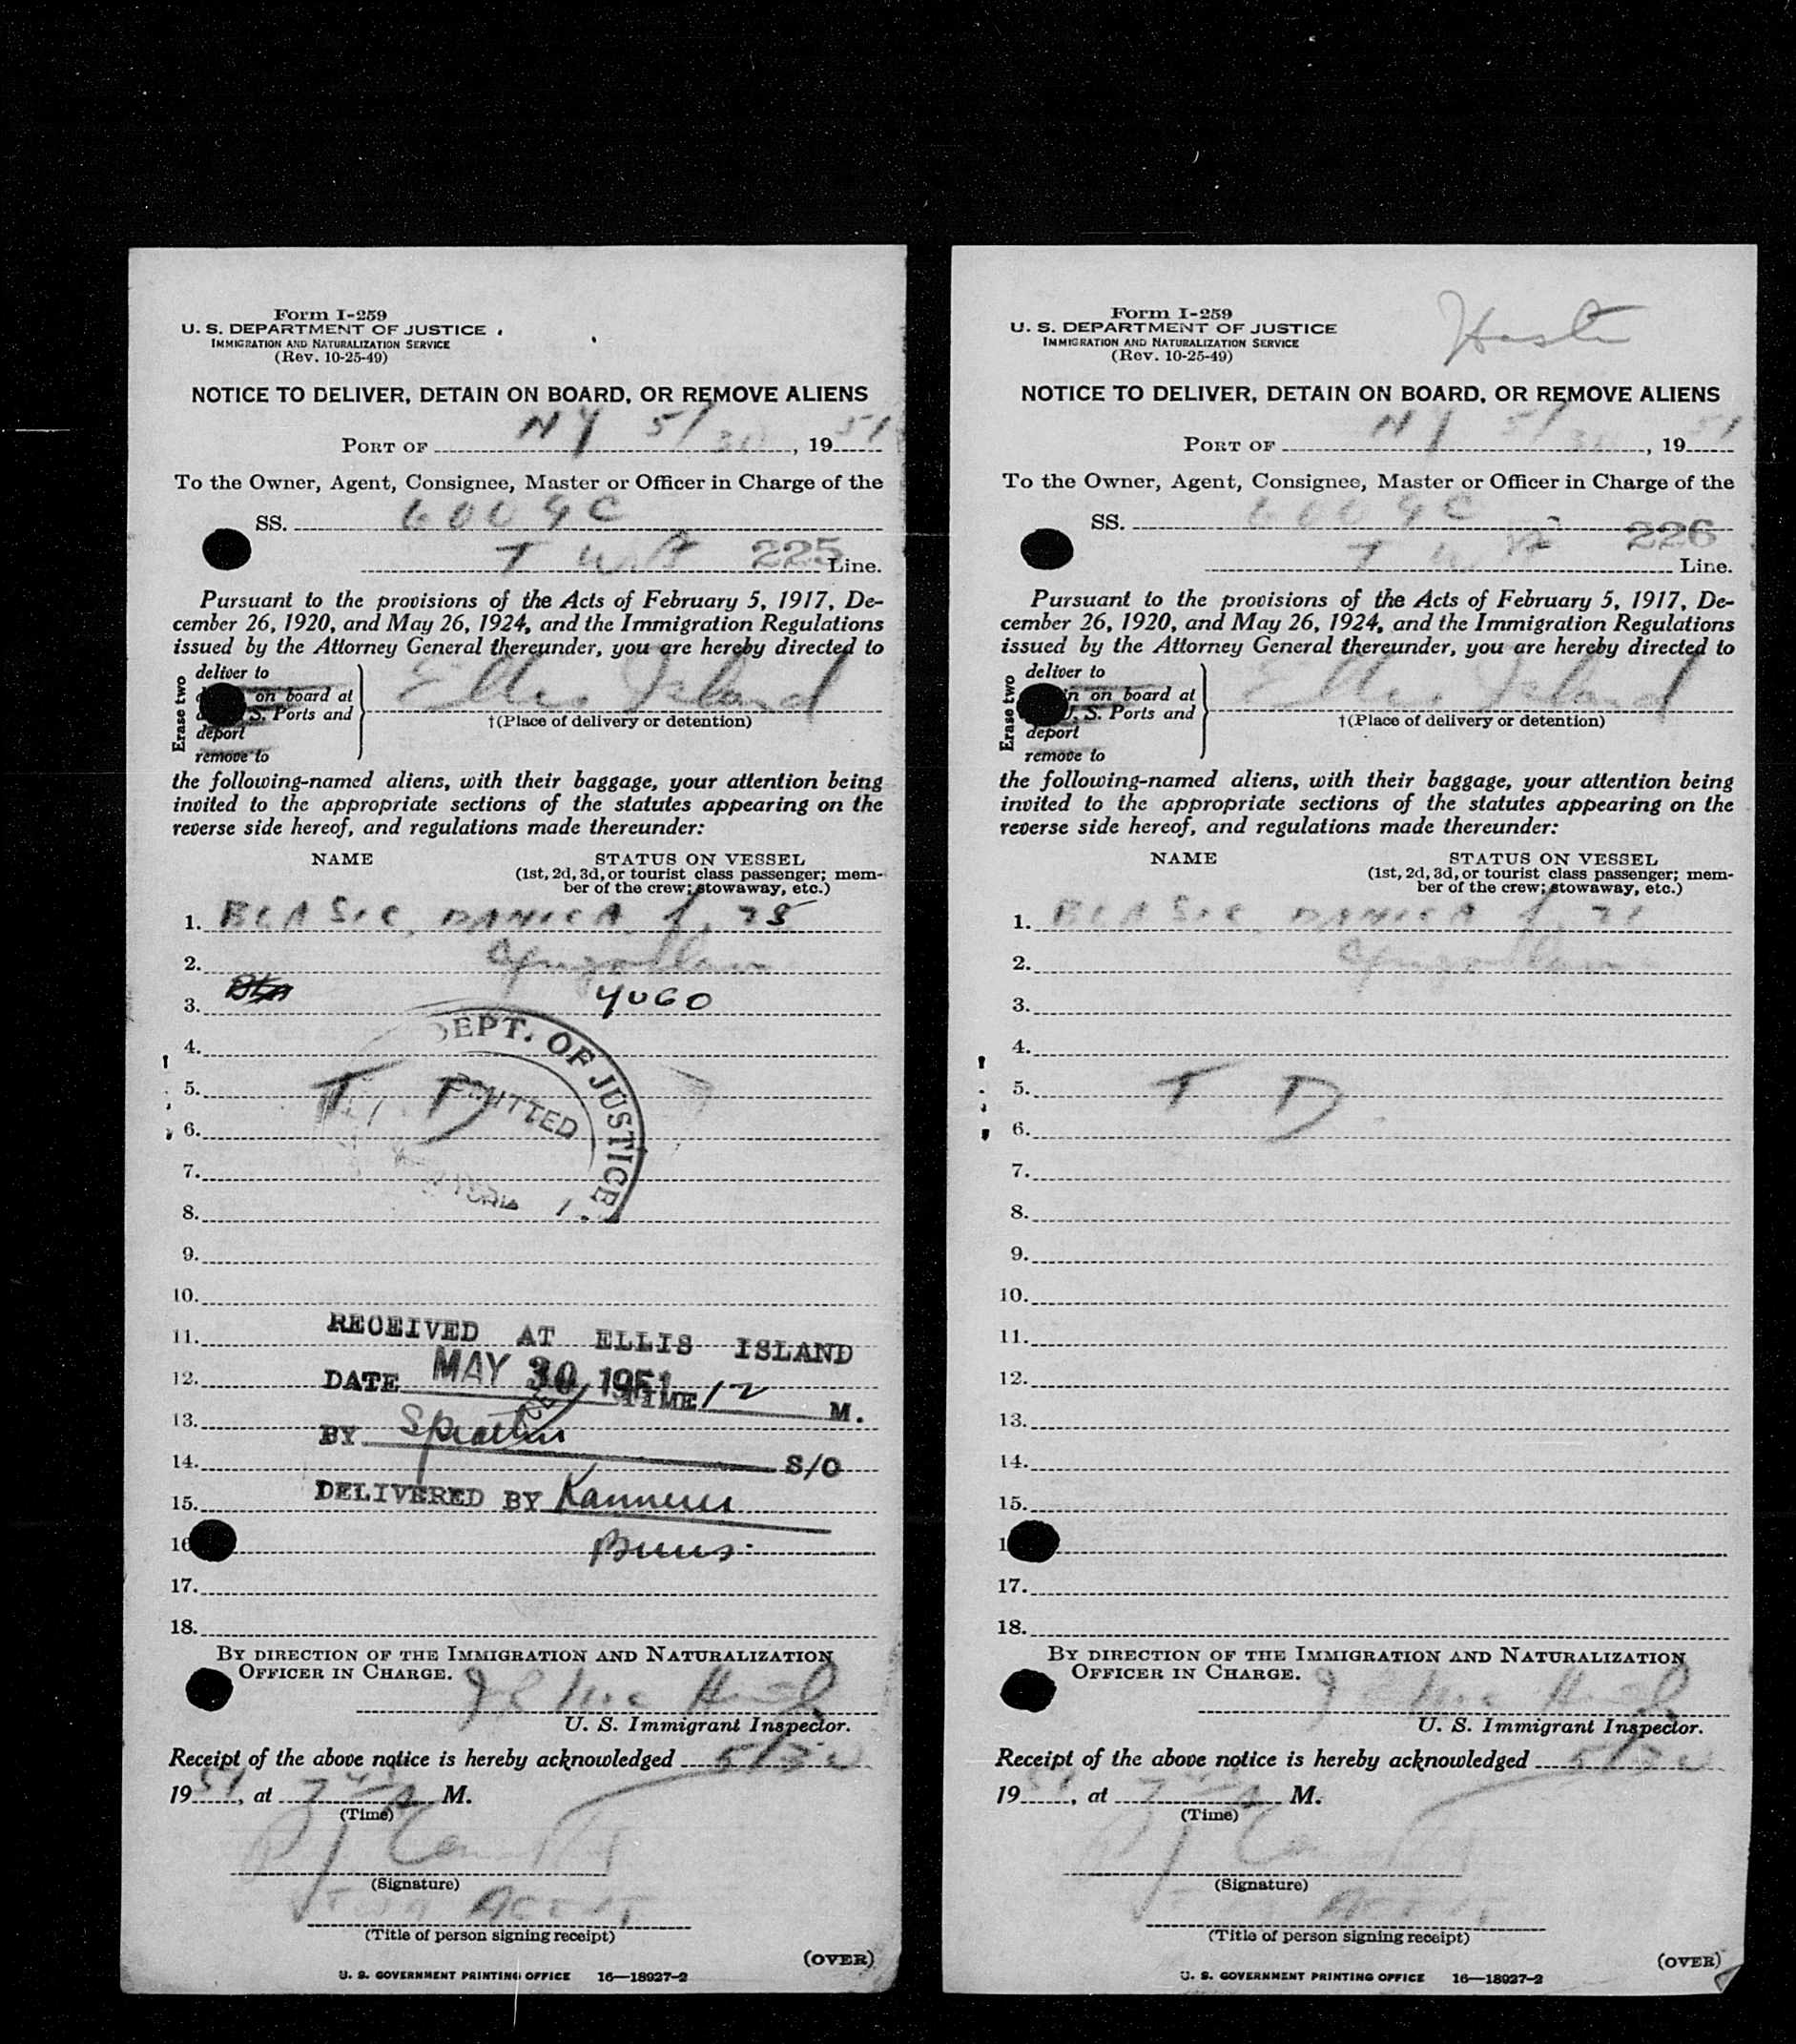 Form I-259
U. S. DEPARTMENT OF JUSTICE
IMMIGRATION AND NATURALIZATION SERVICE
(Rev. 10-25-49)
NOTICE TO DELIVER, DETAIN ON BOARD, OR REMOVE ALIENS
PORT OF NY 5/30, 1951
To the Owner, Agent, Consignee, Master or Officer in Charge of the
SS. 6009C
TWA 225 Line.
Pursuant to the provisions of the Acts of February 5, 1917, De-
cember 26, 1920, and May 26, 1924, and the Immigration Regulations
issued by the Attorney General thereunder, you are hereby directed to
Erase two
deliver to
on board at
S. Ports and
deport
remove to
Ellis Island
†(Place of delivery or detention)
the following-named aliens, with their baggage, your attention being
invited to the appropriate sections of the statutes appearing on the
reverse side hereof, and regulations made thereunder:
NAME STATUS ON VESSEL
(1st, 2d, 3d, or tourist class passenger; mem-
ber of the crew; stowaway, etc.)
1. BLASIC, DANICA f,
2.
3. YUGO
4.
DEPT. OF JUSTICE
5. T D
ADMITTED
6.
7.
NEW YORK
8.
9.
10.
11. RECEIVED AT ELLIS ISLAND
12. DATE MAY 30 1951 TIME 12 M.
13.
BY S/O
14.
15. DELIVERED BY
16
17.
18.
BY DIRECTION OF THE IMMIGRATION AND NATURALIZATION
OFFICER IN CHARGE.
U. S. Immigrant Inspector.
Receipt of the above notice is hereby acknowledged 5/30
1951, at M.
(Time)
(Signature)
AGENT
(Title of person signing receipt)
(OVER)
U. S. GOVERNMENT PRINTING OFFICE 16—18927-2
Form I-259
U. S. DEPARTMENT OF JUSTICE
IMMIGRATION AND NATURALIZATION SERVICE
(Rev. 10-25-49)
NOTICE TO DELIVER, DETAIN ON BOARD, OR REMOVE ALIENS
PORT OF NY 5/30, 1951
To the Owner, Agent, Consignee, Master or Officer in Charge of the
SS. 6009C
TWA 226 Line.
Pursuant to the provisions of the Acts of February 5, 1917, De-
cember 26, 1920, and May 26, 1924, and the Immigration Regulations
issued by the Attorney General thereunder, you are hereby directed to
Erase two
deliver to
on board at
U. S. Ports and
deport
remove to
Ellis Island
†(Place of delivery or detention)
the following-named aliens, with their baggage, your attention being
invited to the appropriate sections of the statutes appearing on the
reverse side hereof, and regulations made thereunder:
NAME STATUS ON VESSEL
(1st, 2d, 3d, or tourist class passenger; mem-
ber of the crew; stowaway, etc.)
1. BLASIC, DANICA f,
2.
3.
4.
5. T D
6.
7.
8.
9.
10.
11.
12.
13.
14.
15.
1
17.
18.
BY DIRECTION OF THE IMMIGRATION AND NATURALIZATION
OFFICER IN CHARGE.
U. S. Immigrant Inspector.
Receipt of the above notice is hereby acknowledged 5/30
1951, at M.
(Time)
(Signature)
AGENT
(Title of person signing receipt)
(OVER)
U. S. GOVERNMENT PRINTING OFFICE 16—18927-2